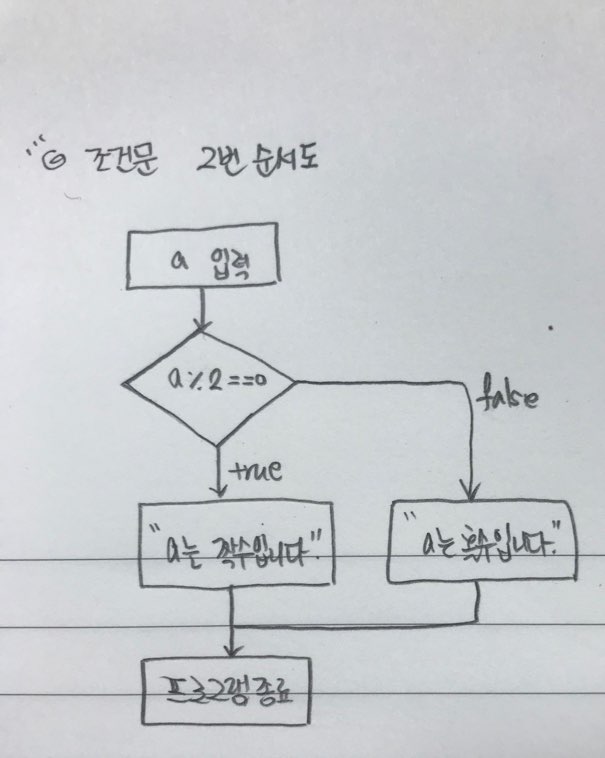 조건문 2번 순서도
a 입력
a%2==0
false
true
"a는 짝수입니다."
"a는 홀수입니다."
프로그램 종료